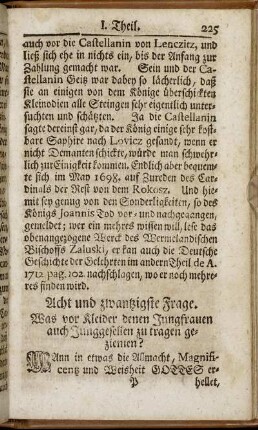 I. Theil. 225
auch vor die Castellanin von Lenczitz, und
ließ sich ehe in nichts ein, bis der Anfang zur
Zahlung gemacht war. Sein und der Ca-
stellanin Geitz war dabey so lächerlich, daß
sie an einigen von dem Könige überschickten
Kleinodien alle Steingen sehr eigentlich unter-
suchten und schätzten. Ja die Castellanin
sagte dereinst gar, da der König einige sehr kost-
bare Saphire nach Lovicz gesandt, wenn er
nicht Demanten schickte, würde man schwehr-
lich zur Einigkeit kommen. Endlich aber bequem-
te sich im May 1698. auf Zureden des Car-
dinals der Rest von dem Rokosz. Und hie-
mit sey genug von den Sonderligkeiten, so des
Königs Joannis Tod vor- und nachgegangen,
gemeldet; wer ein mehres wissen will, lese das
obenangezogene Werck des Wermelandischen
Bischoffs Zaluski, er kan auch die Deutsche
Geschichte der Gelehrten im andern Theil de A.
1712 pag. 102 nachschlagen, wo er noch mehre-
res finden wird.
Acht und zwantzigste Frage.
Was vor Kleider denen Jungfrauen
auch Junggesellen zu tragen ge-
ziemen?
WAnn in etwas die Allmacht, Magnifi-
centz und Weisheit GOTTES er-
P hellet,